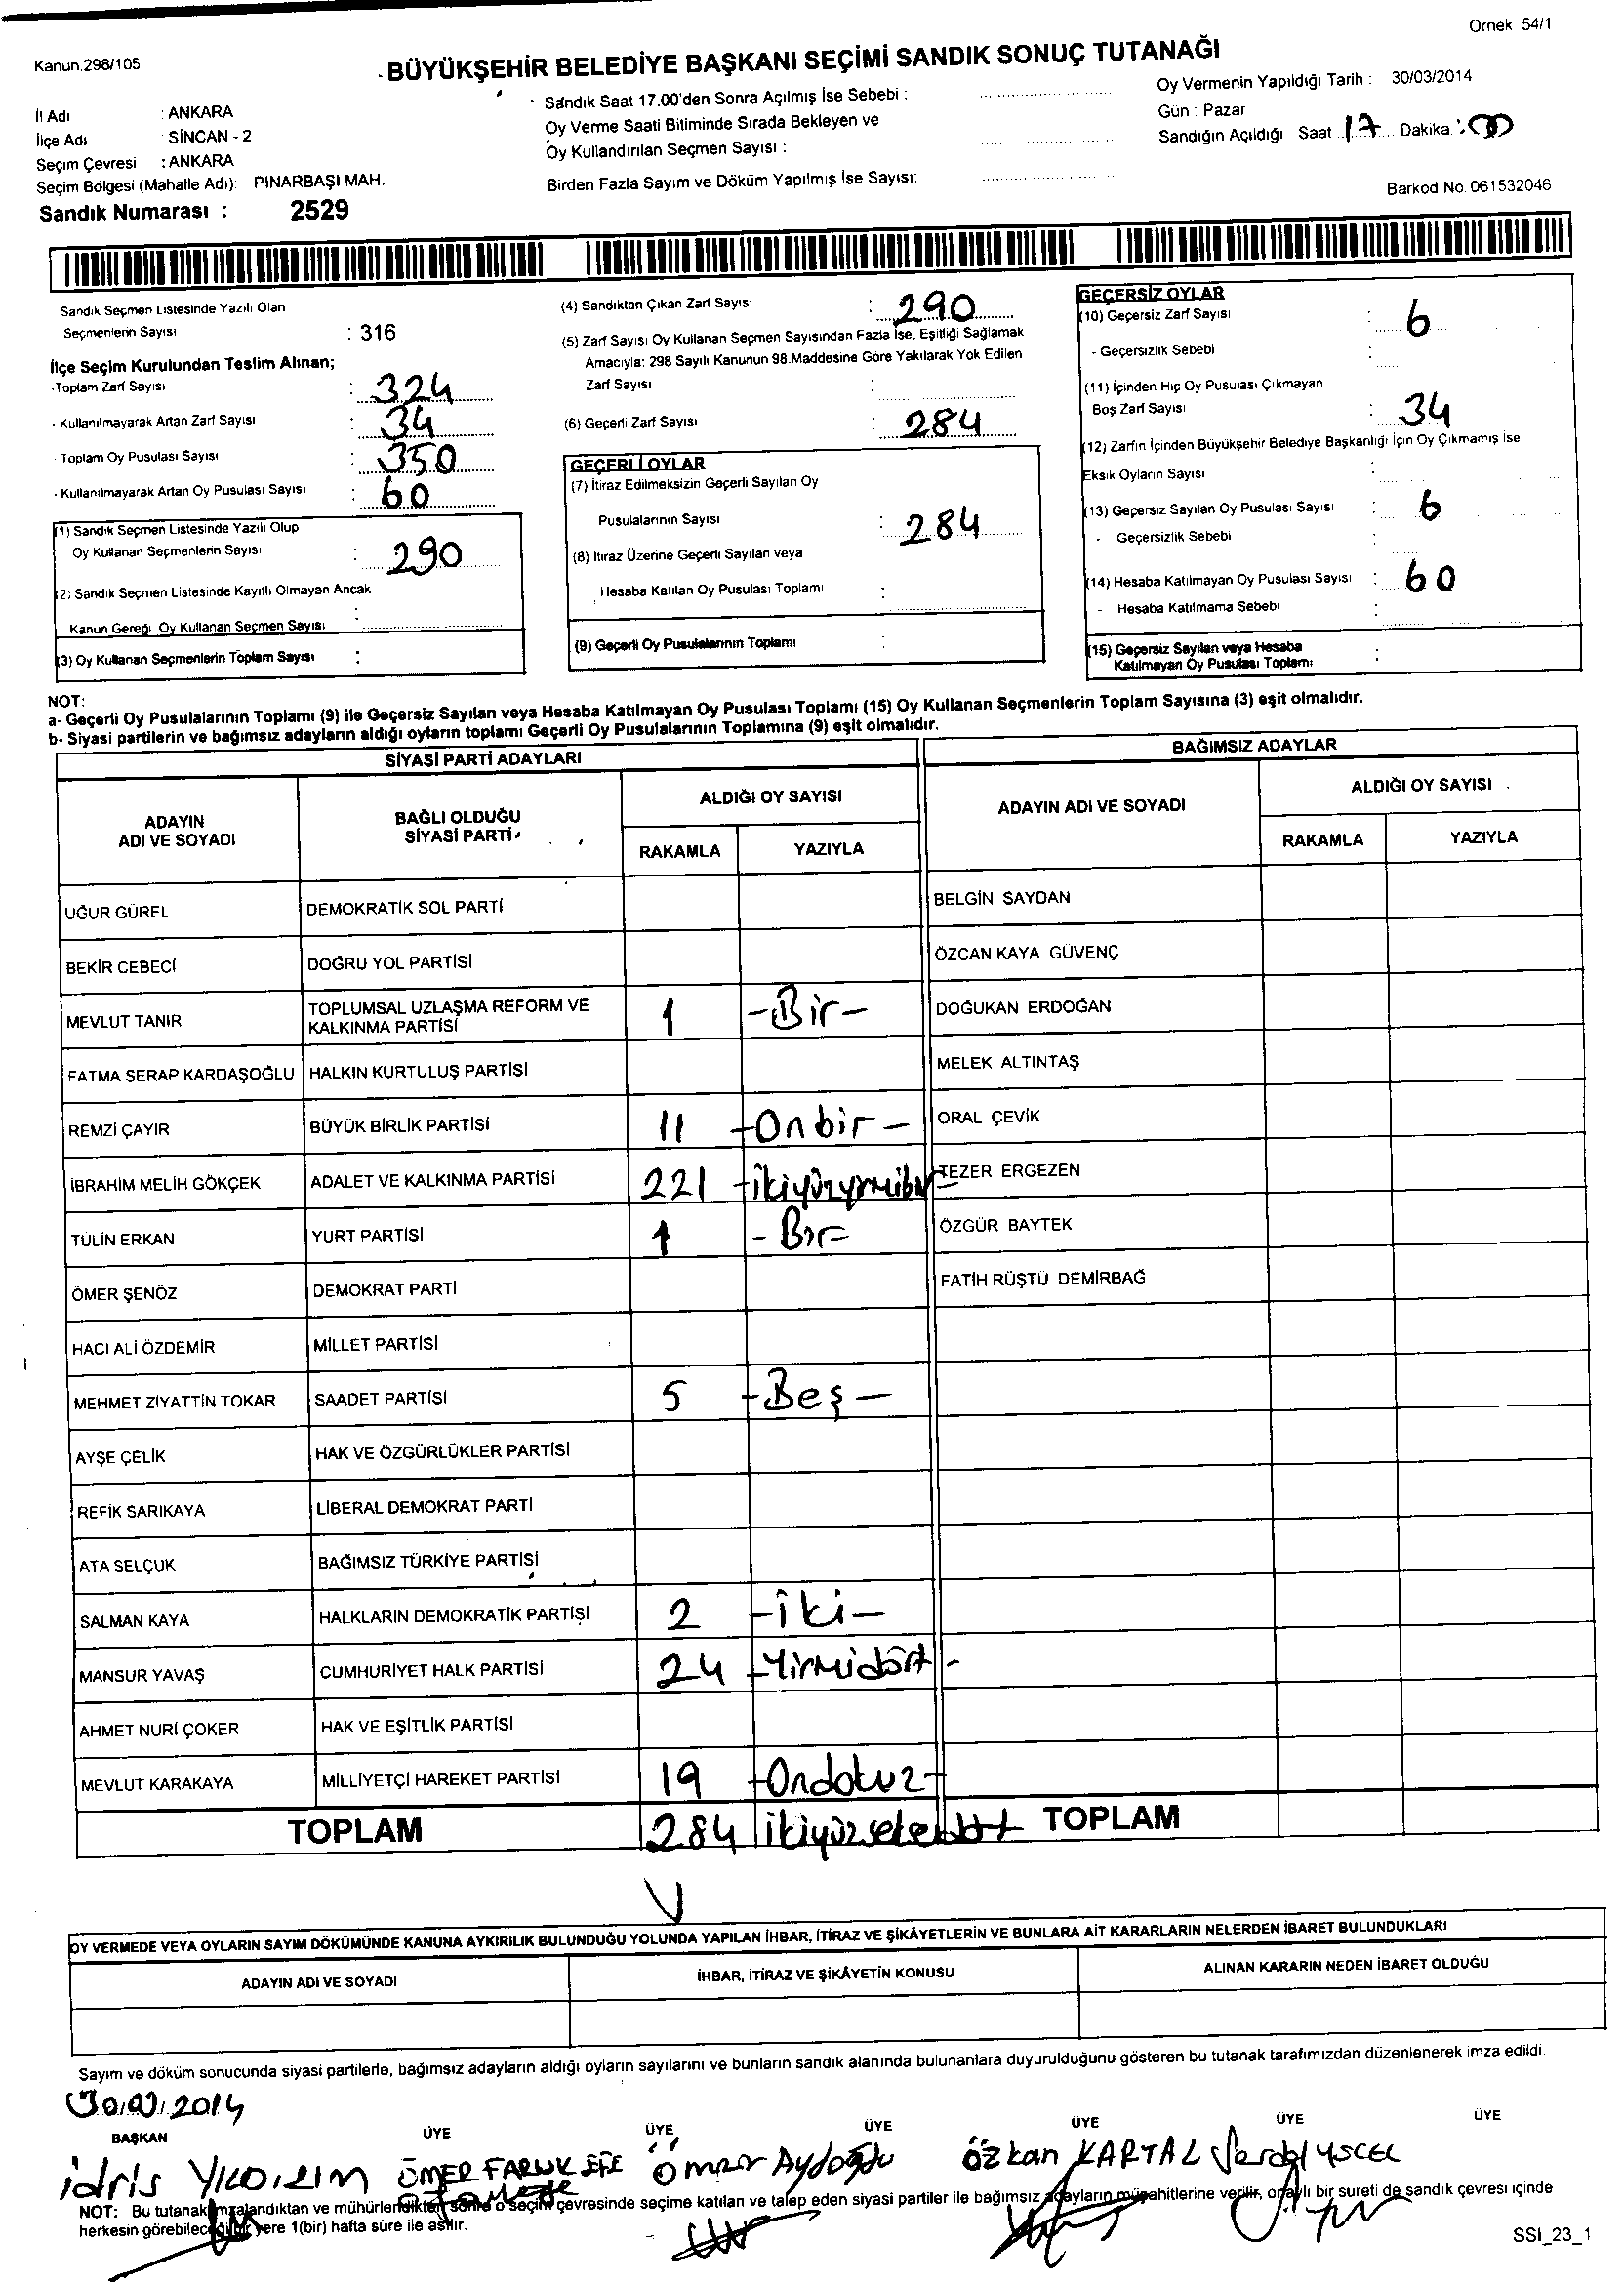 Örnek 54/1
Kanun.298/105
BÜYÜKŞEHİR BELEDİYE BAŞKANI SEÇİMİ SANDIK SONUÇ TUTANAĞI
İl Adı : ANKARA
İlçe Adı : SİNCAN - 2
Seçim Çevresi : ANKARA
Seçim Bölgesi (Mahalle Adı): PINARBAŞI MAH.
Sandık Numarası : 2529
Sandık Saat 17.00'den Sonra Açılmış İse Sebebi :
Oy Verme Saati Bitiminde Sırada Bekleyen ve
Oy Kullandırılan Seçmen Sayısı :
Birden Fazla Sayım ve Döküm Yapılmış İse Sayısı:
Oy Vermenin Yapıldığı Tarih : 30/03/2014
Gün : Pazar
Sandığın Açıldığı Saat 17 Dakika : 00
Barkod No. 061532046
Sandık Seçmen Listesinde Yazılı Olan
Seçmenlerin Sayısı : 316
İlçe Seçim Kurulundan Teslim Alınan;
-Toplam Zarf Sayısı : 324
- Kullanılmayarak Artan Zarf Sayısı : 34
- Toplam Oy Pusulası Sayısı : 350
- Kullanılmayarak Artan Oy Pusulası Sayısı : 60
(1) Sandık Seçmen Listesinde Yazılı Olup
Oy Kullanan Seçmenlerin Sayısı : 290
(2) Sandık Seçmen Listesinde Kayıtlı Olmayan Ancak
Kanun Gereği Oy Kullanan Seçmen Sayısı :
(3) Oy Kullanan Seçmenlerin Toplam Sayısı :
(4) Sandıktan Çıkan Zarf Sayısı : 290
(5) Zarf Sayısı Oy Kullanan Seçmen Sayısından Fazla İse, Eşitliği Sağlamak
Amacıyla: 298 Sayılı Kanunun 98.Maddesine Göre Yakılarak Yok Edilen
Zarf Sayısı :
(6) Geçerli Zarf Sayısı : 284
GEÇERLİ OYLAR
(7) İtiraz Edilmeksizin Geçerli Sayılan Oy
Pusulalarının Sayısı : 284
(8) İtiraz Üzerine Geçerli Sayılan veya
Hesaba Katılan Oy Pusulası Toplamı :
(9) Geçerli Oy Pusulalarının Toplamı :
GEÇERSİZ OYLAR
(10) Geçersiz Zarf Sayısı : 6
- Geçersizlik Sebebi :
(11) İçinden Hiç Oy Pusulası Çıkmayan
Boş Zarf Sayısı : 34
(12) Zarfın İçinden Büyükşehir Belediye Başkanlığı İçin Oy Çıkmamış İse
Eksik Oyların Sayısı :
(13) Geçersiz Sayılan Oy Pusulası Sayısı : 6
- Geçersizlik Sebebi :
(14) Hesaba Katılmayan Oy Pusulası Sayısı : 60
- Hesaba Katılmama Sebebi :
(15) Geçersiz Sayılan veya Hesaba
Katılmayan Oy Pusulası Toplamı :
NOT:
a- Geçerli Oy Pusulalarının Toplamı (9) ile Geçersiz Sayılan veya Hesaba Katılmayan Oy Pusulası Toplamı (15) Oy Kullanan Seçmenlerin Toplam Sayısına (3) eşit olmalıdır.
b- Siyasi partilerin ve bağımsız adayların aldığı oyların toplamı Geçerli Oy Pusulalarının Toplamına (9) eşit olmalıdır.
SİYASİ PARTİ ADAYLARI
ADAYIN ADI VE SOYADI BAĞLI OLDUĞU SİYASİ PARTİ ALDIĞI OY SAYISI
RAKAMLA YAZIYLA
UĞUR GÜREL DEMOKRATİK SOL PARTİ
BEKİR CEBECİ DOĞRU YOL PARTİSİ
MEVLUT TANIR TOPLUMSAL UZLAŞMA REFORM VE KALKINMA PARTİSİ 1 -Bir-
FATMA SERAP KARDAŞOĞLU HALKIN KURTULUŞ PARTİSİ
REMZİ ÇAYIR BÜYÜK BİRLİK PARTİSİ 11 -Onbir-
İBRAHİM MELİH GÖKÇEK ADALET VE KALKINMA PARTİSİ 221 -ikiyüzyirmibir-
TÜLİN ERKAN YURT PARTİSİ 1 -Bir-
ÖMER ŞENÖZ DEMOKRAT PARTİ
HACI ALİ ÖZDEMİR MİLLET PARTİSİ
MEHMET ZİYATTİN TOKAR SAADET PARTİSİ 5 -Beş-
AYŞE ÇELİK HAK VE ÖZGÜRLÜKLER PARTİSİ
REFİK SARIKAYA LİBERAL DEMOKRAT PARTİ
ATA SELÇUK BAĞIMSIZ TÜRKİYE PARTİSİ
SALMAN KAYA HALKLARIN DEMOKRATİK PARTİSİ 2 -iki-
MANSUR YAVAŞ CUMHURİYET HALK PARTİSİ 24 -Yirmidört-
AHMET NURİ ÇOKER HAK VE EŞİTLİK PARTİSİ
MEVLUT KARAKAYA MİLLİYETÇİ HAREKET PARTİSİ 19 -Ondokuz-
TOPLAM 284 ikiyüzseksendört
BAĞIMSIZ ADAYLAR
ADAYIN ADI VE SOYADI ALDIĞI OY SAYISI
RAKAMLA YAZIYLA
BELGİN SAYDAN
ÖZCAN KAYA GÜVENÇ
DOĞUKAN ERDOĞAN
MELEK ALTINTAŞ
ORAL ÇEVİK
TEZER ERGEZEN
ÖZGÜR BAYTEK
FATİH RÜŞTÜ DEMİRBAĞ
TOPLAM
OY VERMEDE VEYA OYLARIN SAYIM DÖKÜMÜNDE KANUNA AYKIRILIK BULUNDUĞU YOLUNDA YAPILAN İHBAR, İTİRAZ VE ŞİKÂYETLERİN VE BUNLARA AİT KARARLARIN NELERDEN İBARET BULUNDUKLARI
ADAYIN ADI VE SOYADI İHBAR, İTİRAZ VE ŞİKÂYETİN KONUSU ALINAN KARARIN NEDEN İBARET OLDUĞU
Sayım ve döküm sonucunda siyasi partilerle, bağımsız adayların aldığı oyların sayılarını ve bunların sandık alanında bulunanlara duyurulduğunu gösteren bu tutanak tarafımızdan düzenlenerek imza edildi.
30.03.2014
BAŞKAN ÜYE ÜYE ÜYE ÜYE ÜYE ÜYE
idris YILDIRIM ÖMER FARUK EFE Ömer Aydoğdu Özkan KARTAL Serdal YÜSCEL
NOT: Bu tutanak imzalandıktan ve mühürlendikten sonra o seçim çevresinde seçime katılan ve talep eden siyasi partiler ile bağımsız adayların müşahitlerine verilir, onaylı bir sureti de sandık çevresi içinde
herkesin görebileceği bir yere 1(bir) hafta süre ile asılır.
SSI_23_1